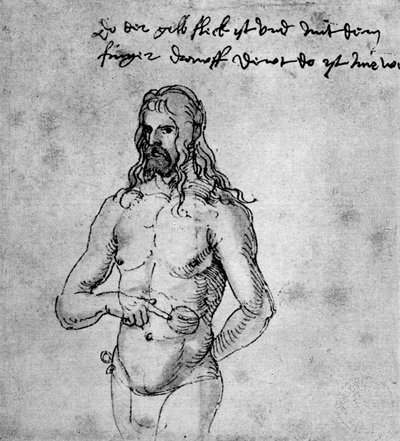 Do der gelb fleck ist vnd mit dem
finger drawff dewt do ist mir we